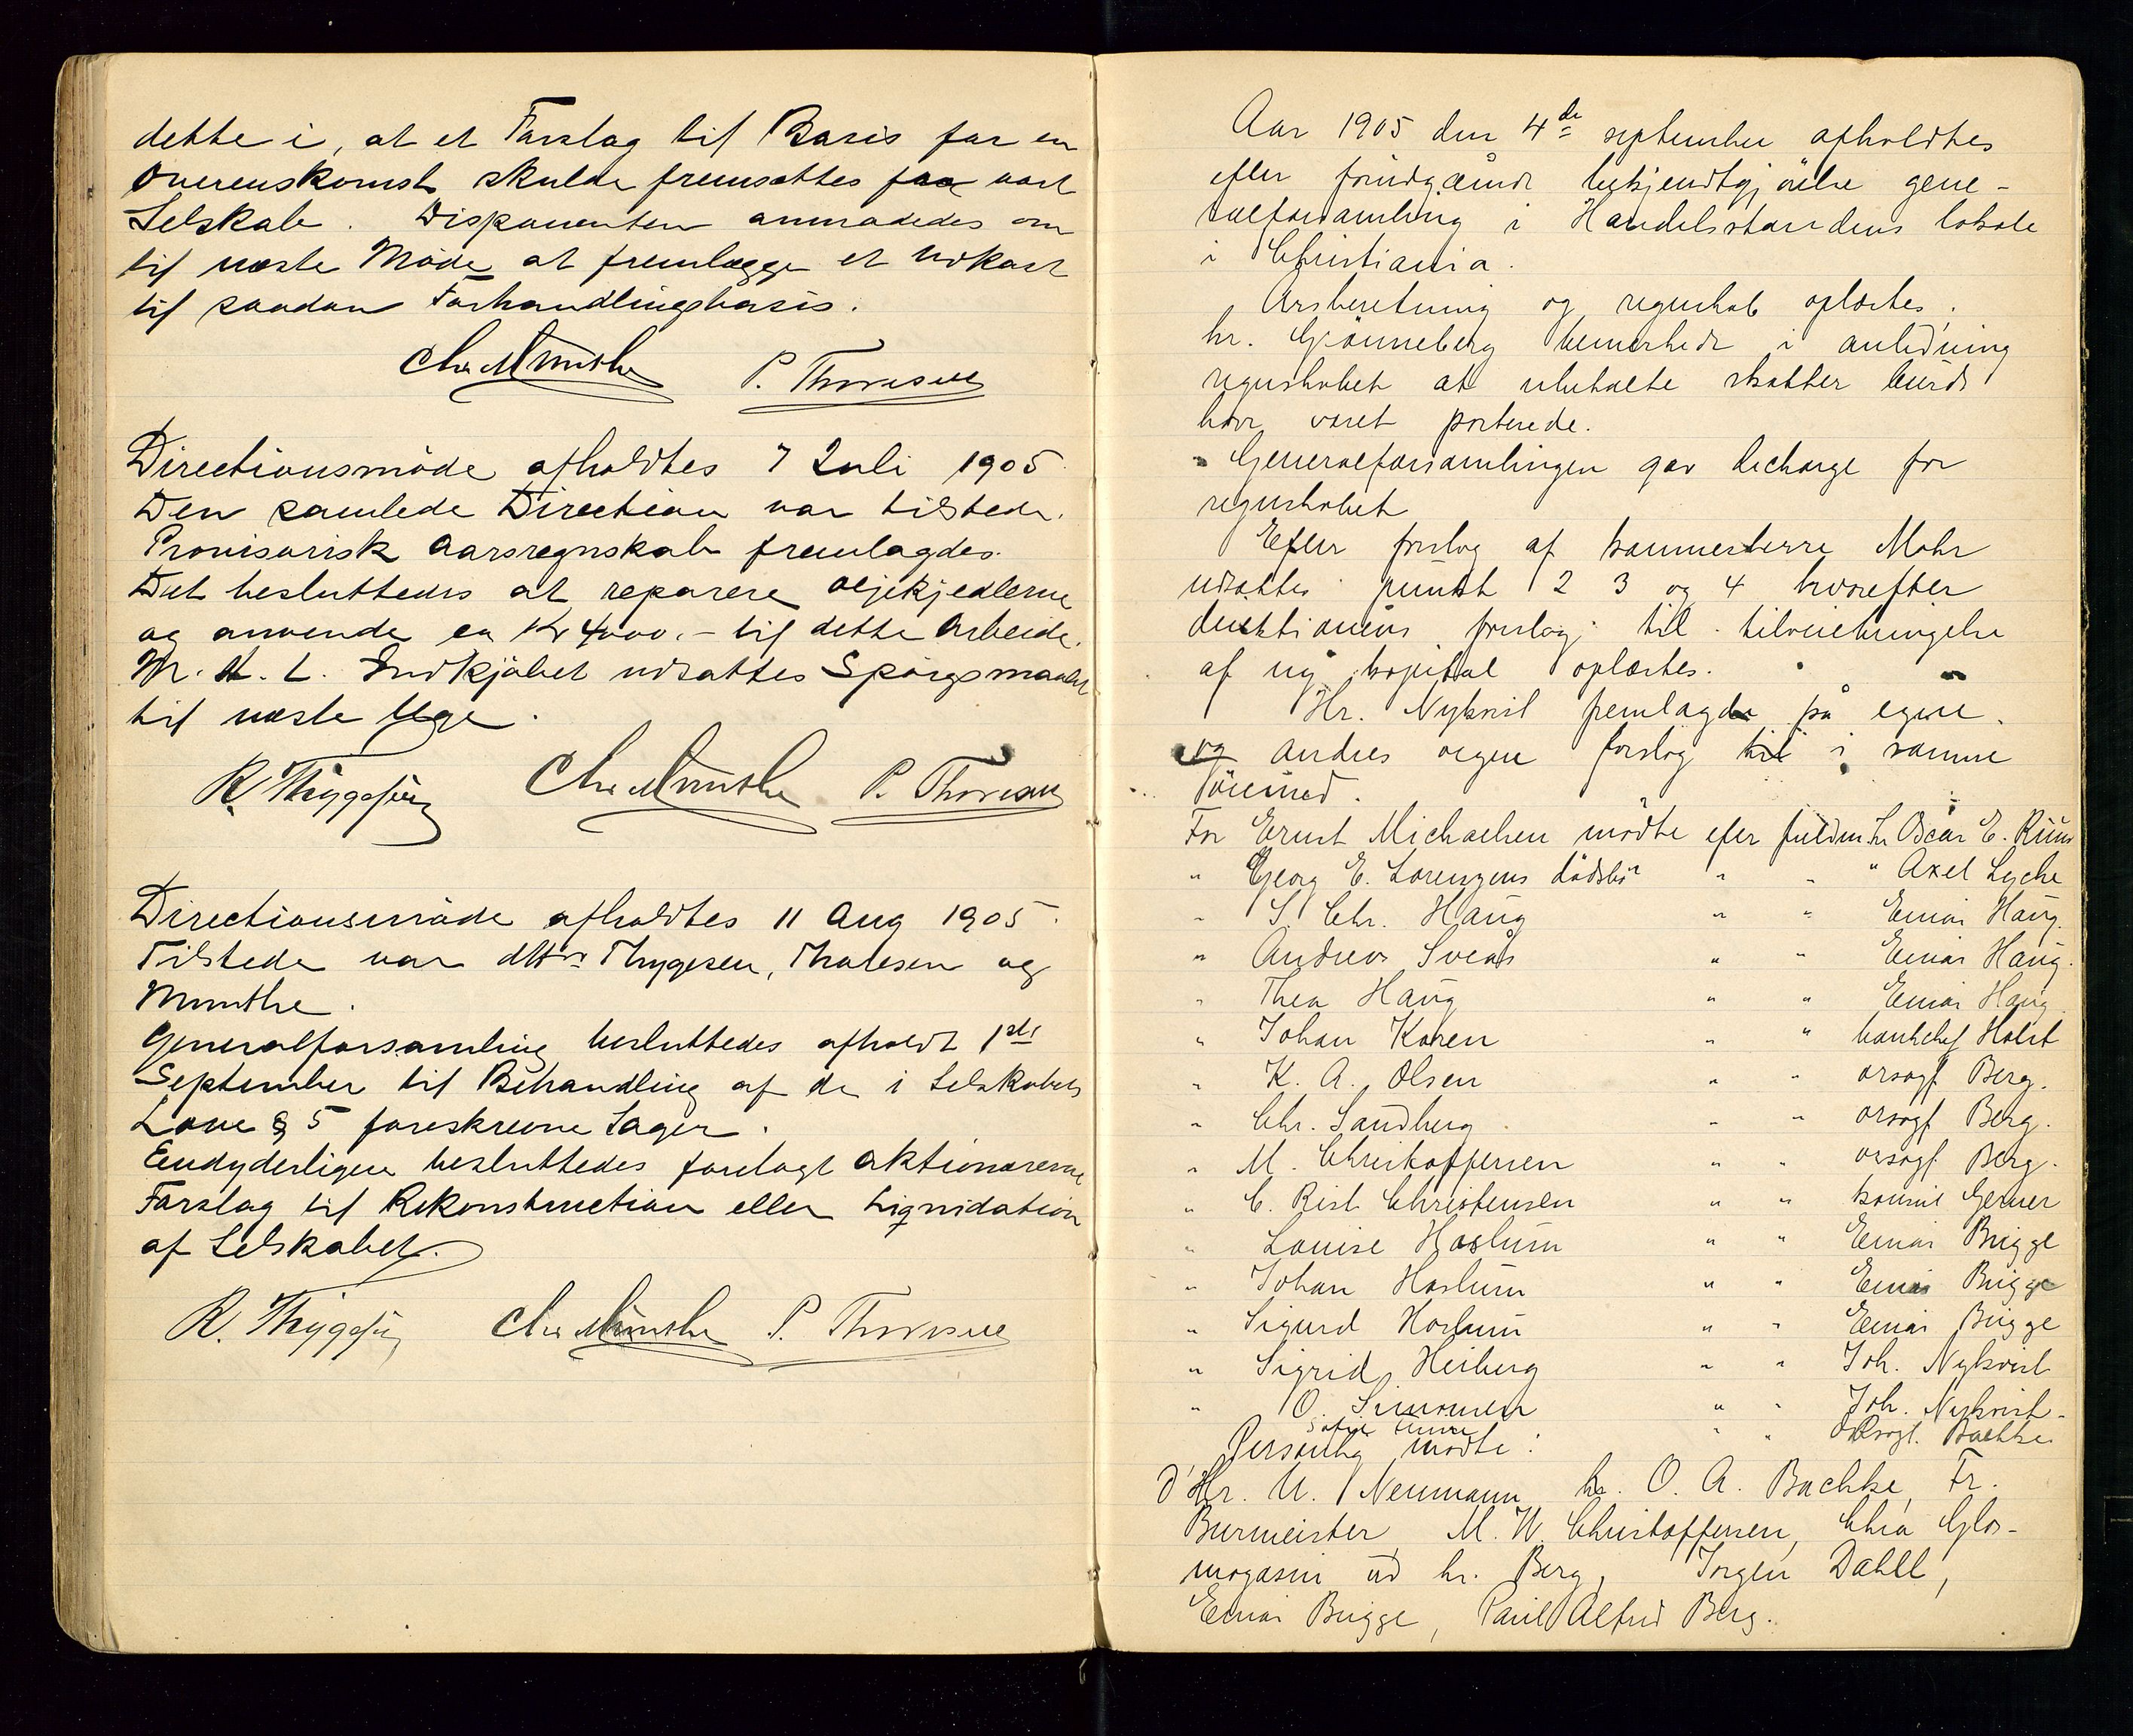 dette i, at et Forslag til Basis for en
Overenskomst skulde fremsættes fra vort
Selskab. Disponenten anmodedes om
til næste Møde at fremlægge et Udkast
til saadan Forhandlingsbasis.
Chr Munthe P. Thoresen
Directionsmöde afholdtes 7 Juli 1905
Den samlede Direction var tilstede.
Provisorisk Aarsregnskab fremlagdes.
Det besluttedes at reparere oljekjedlerne
og anvende ca Kr 4000.- til dette Arbeide.
M. H. L. Indkjøbet udsattes Spørgsmaalet
til næste Uge.
R. Thygesen Chr Munthe P. Thoresen
Directionsmöde afholdtes 11 Aug 1905.
Tilstede var dHrr Thygesen, Thoresen og
Munthe.
Generalforsamling besluttedes afholdt 1ste
September til Behandling af de i Selskabets
Love § 5 foreskrevne Sager.
Endyderligere besluttedes forelagt Aktionærerne
Forslag til Rekonstruction eller Liqvidation
af Selskabet.
R. Thygesen Chr Munthe P. Thoresen
Aar 1905 den 4de september afholdtes
efter forudgående bekjendtgjörelse gene-
ralforsamling i Handelsstandens lokale
i Christiania.
Årsberetning og regnskab oplæstes.
hr. Grönneberg bemerkede i anledning
regnskabet at ubetalte skatter burde
have været posterede.
Generalforsamlingen gav decharge for
regnskabet
Efter forslag af kammerherre Mohr
udsattes punkt 2 3 og 4 hvorefter
direktionens forslag til tilveiebringelse
af ny kapital oplæstes.
Hr. Nykvist fremlagde på egne
og andres vegne forslag til i samme
öiemed.
For Ernst Michaelsen mödte efter fuldm. hr Oscar E. Rum
" Georg E. Lorenzens dödsbo " " " Axel Lycke
" S. Chr. Haug " " Einar Haug.
" Andreas Sveås " " Einar Haug.
" Thea Haug " " Einar Haug
" Johan Koren " " bankchef Holst
" K. A. Olsen " " orsagf. Berg.
" Chr. Sandberg " " orsagf Berg.
" M. Christoffersen " " orsagf. Berg.
" C. Rist Christensen " " konsul Gerner
" Louise Haslum " " Einar Brigge
" Johan Haslum " " Einar Brigge
" Sigurd Haslum " " Einar Brigge
" Sigrid Heiberg " " Joh. Nykvist
" O. Simonsen " " Joh. Nykvist.
Sofie " " Orsagf. Bachke.
Personlig mödte:
d'Hr. U. Neumann, hr. O. A. Bachke, Fr.
Burmeister, M. W. Christoffersen, Chra Glas-
magasin ved hr. Berg, Jörgen Dahll,
Einar Brigge, Paul Alfred Berg.